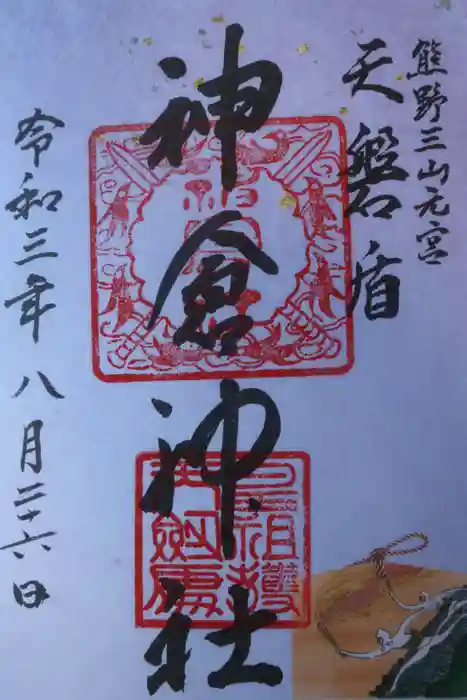 熊野三山元宮
天磐盾
神倉神社
令和三年八月二十六日